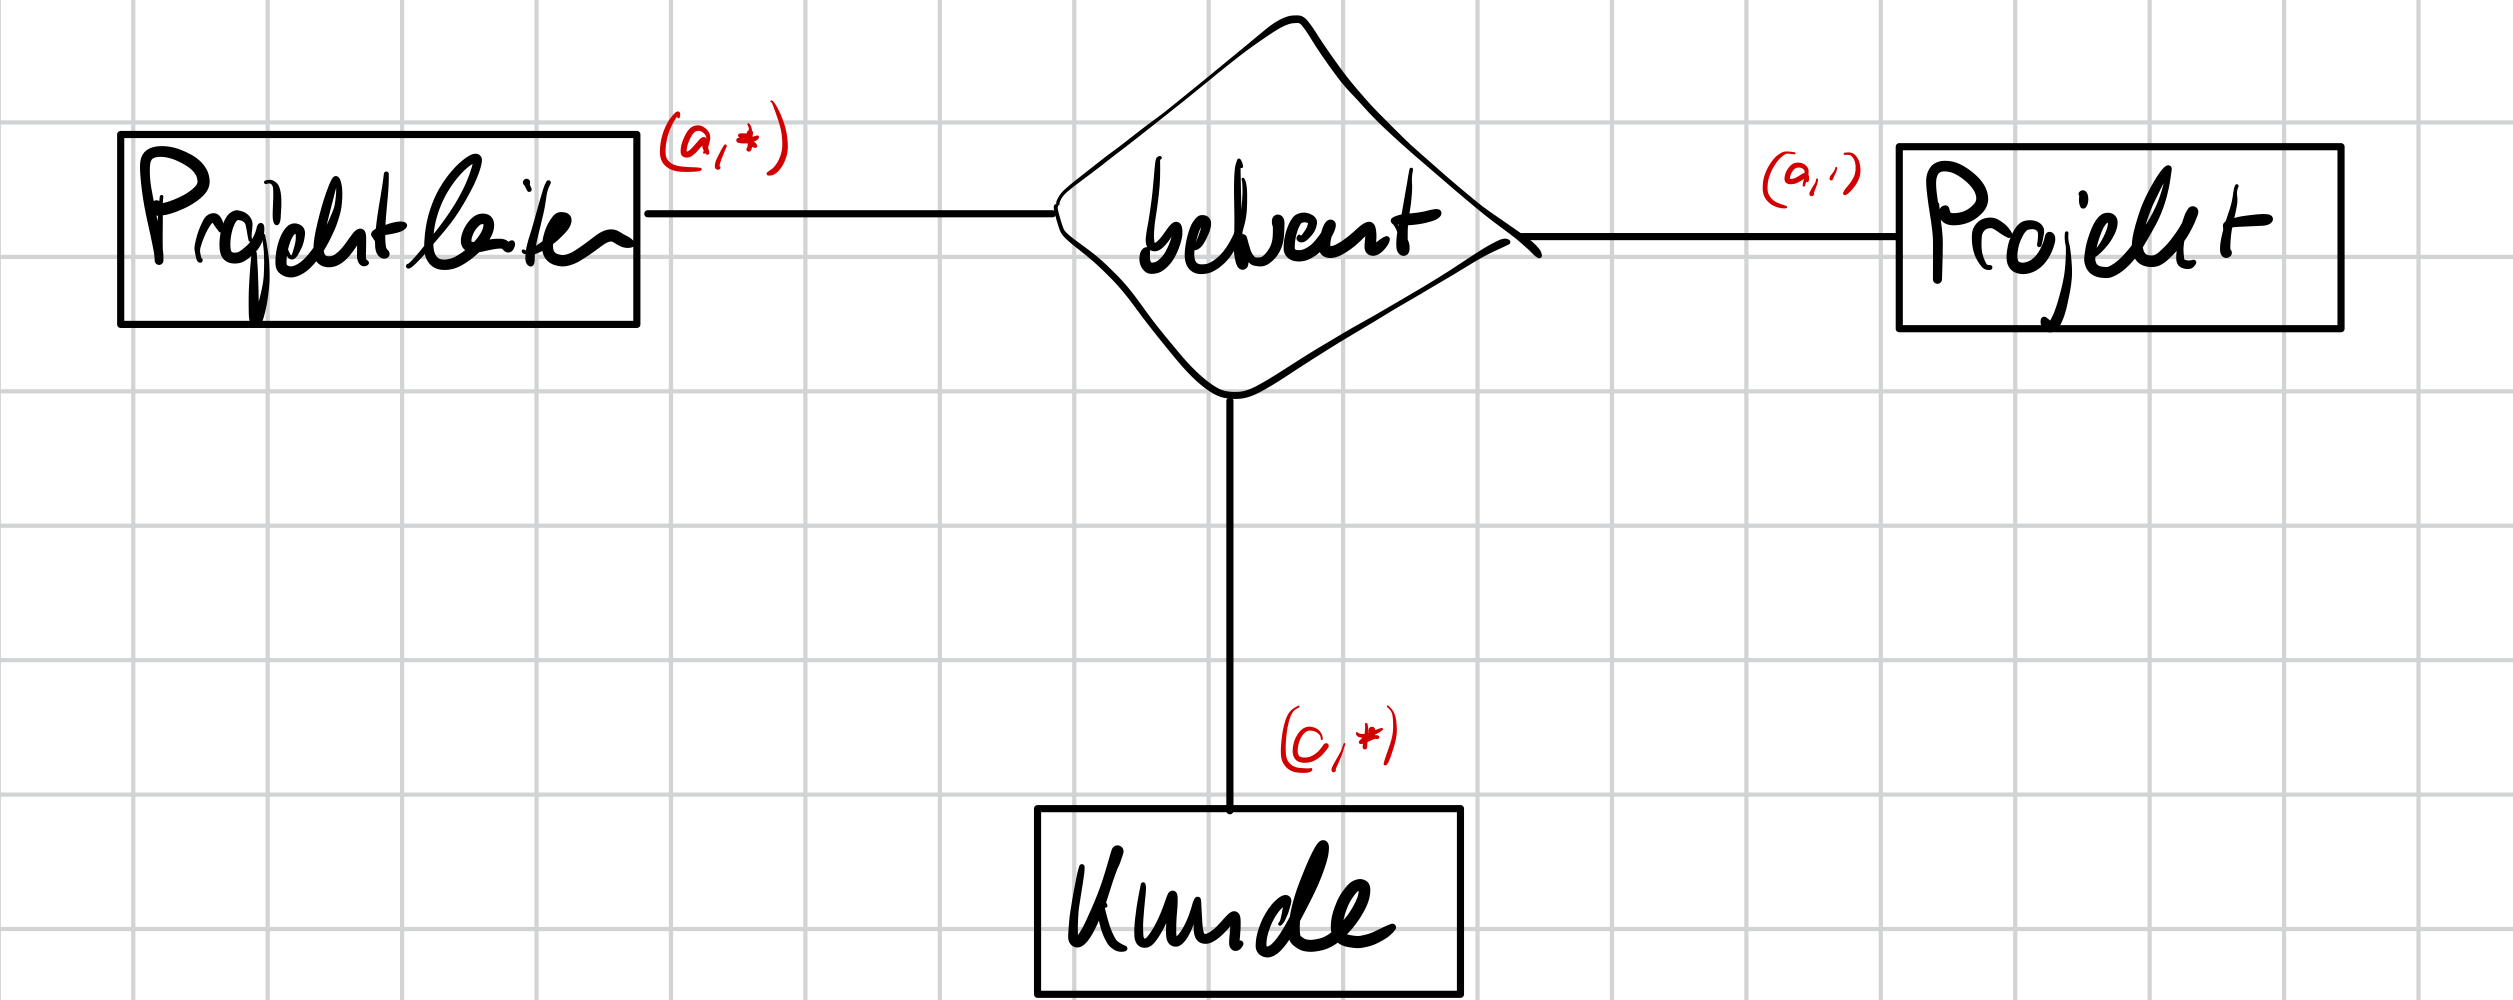 (0,*)
(0,1)
Projektleiter
betreut
Projekt
(0,*)
Kunde